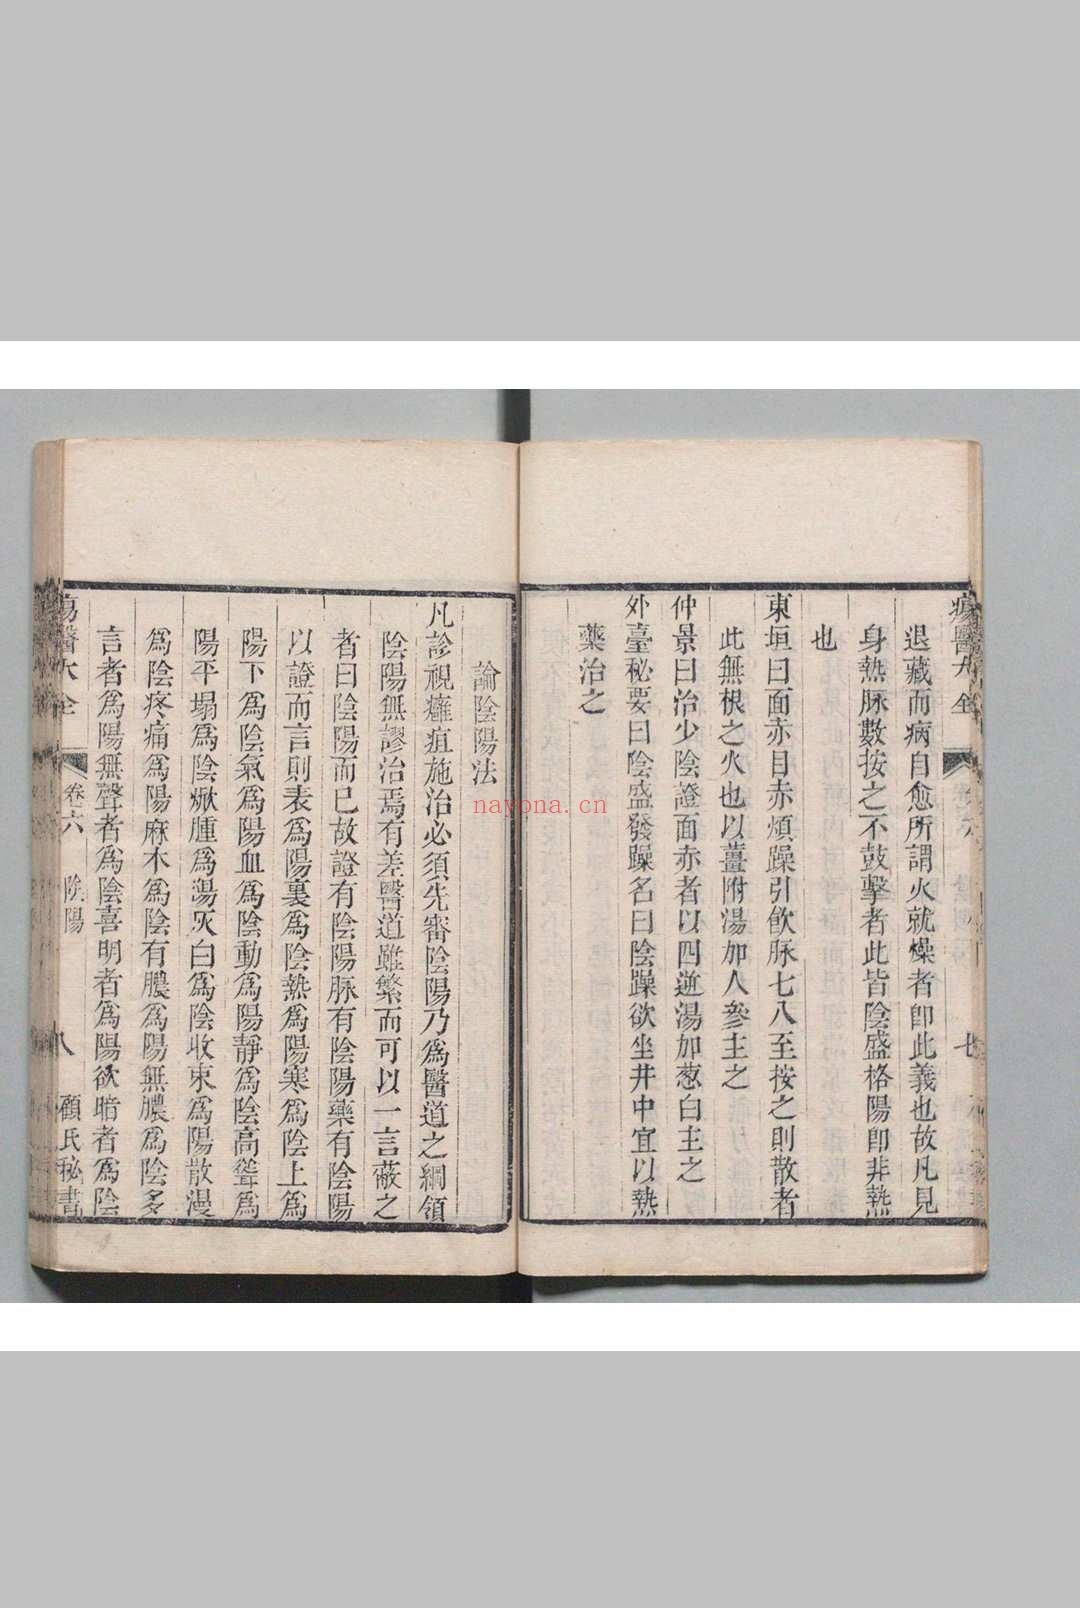 瘍醫大全
退藏而病自愈所謂火就燥者卽此義也故凡見
身熱脉數按之不鼓擊者此皆陰盛格陽卽非熱
也
東垣曰面赤目赤煩躁引飲脉七八至按之則散者
此無根之火也以薑附湯加人參主之
仲景曰治少陰證面赤者以四逆湯加葱白主之
外臺秘要曰陰盛發躁名曰陰躁欲坐井中宜以熱
藥治之
論陰陽法
凡診視癰疽施治必須先審陰陽乃爲醫道之綱領
陰陽無謬治焉有差醫道雖繁而可以一言蔽之
者曰陰陽而已故證有陰陽脉有陰陽藥有陰陽
以證而言則表爲陽裏爲陰熱爲陽寒爲陰上爲
陽下爲陰氣爲陽血爲陰動爲陽靜爲陰高聳爲
陽平塌爲陰焮腫爲陽灰白爲陰收束爲陽散漫
爲陰疼痛爲陽麻木爲陰有膿爲陽無膿爲陰多
言者爲陽無聲者爲陰喜明者爲陽欲暗者爲陰
瘍醫大全 卷六 陰陽 八 顧氏秘書
nayona.cn